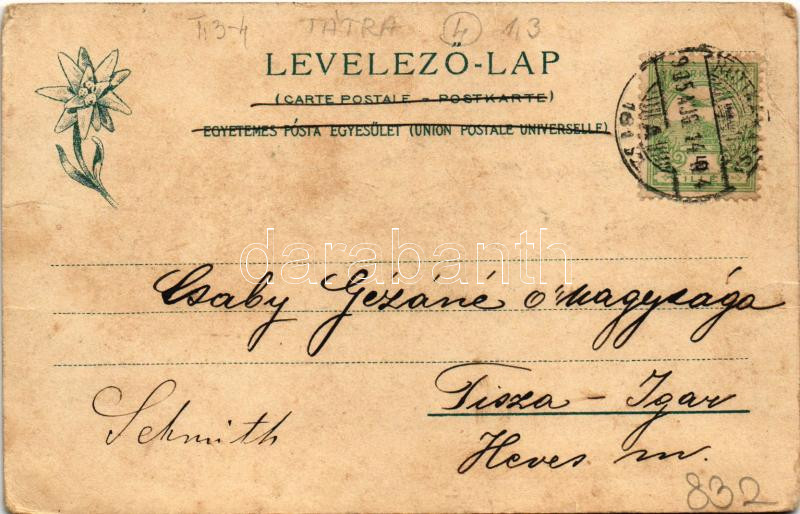 II3-4 TÁTRA 4 1,3
LEVELEZŐ-LAP
(CARTE POSTALE – POSTKARTE)
EGYETEMES PÓSTA EGYESÜLET (UNION POSTALE UNIVERSELLE)
905 AUG 14
darabanth
Csaby Gézáné ő nagysága
Tisza – Igar
Schmith
Heves m.
832